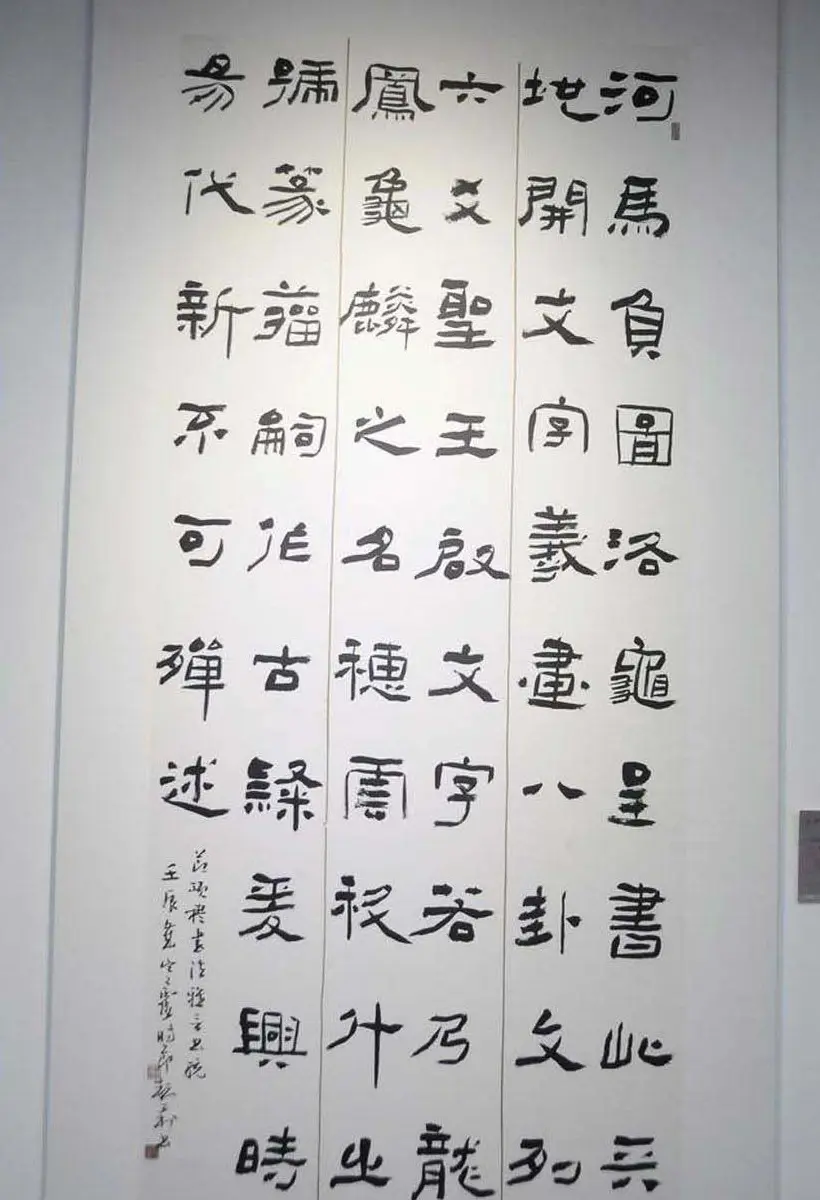 河馬負圖洛龜呈書此天
地開文字羲畫八卦文列
六爻聖王啟文字若乃龍
鳳龜麟之名穗雲科斗之
號篆籀嗣作古隸爰興時
易代新不可殫述
節項穆書法雅言書統
壬辰